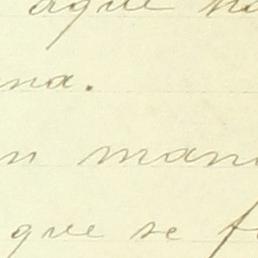 aque
na.
n man
que se f